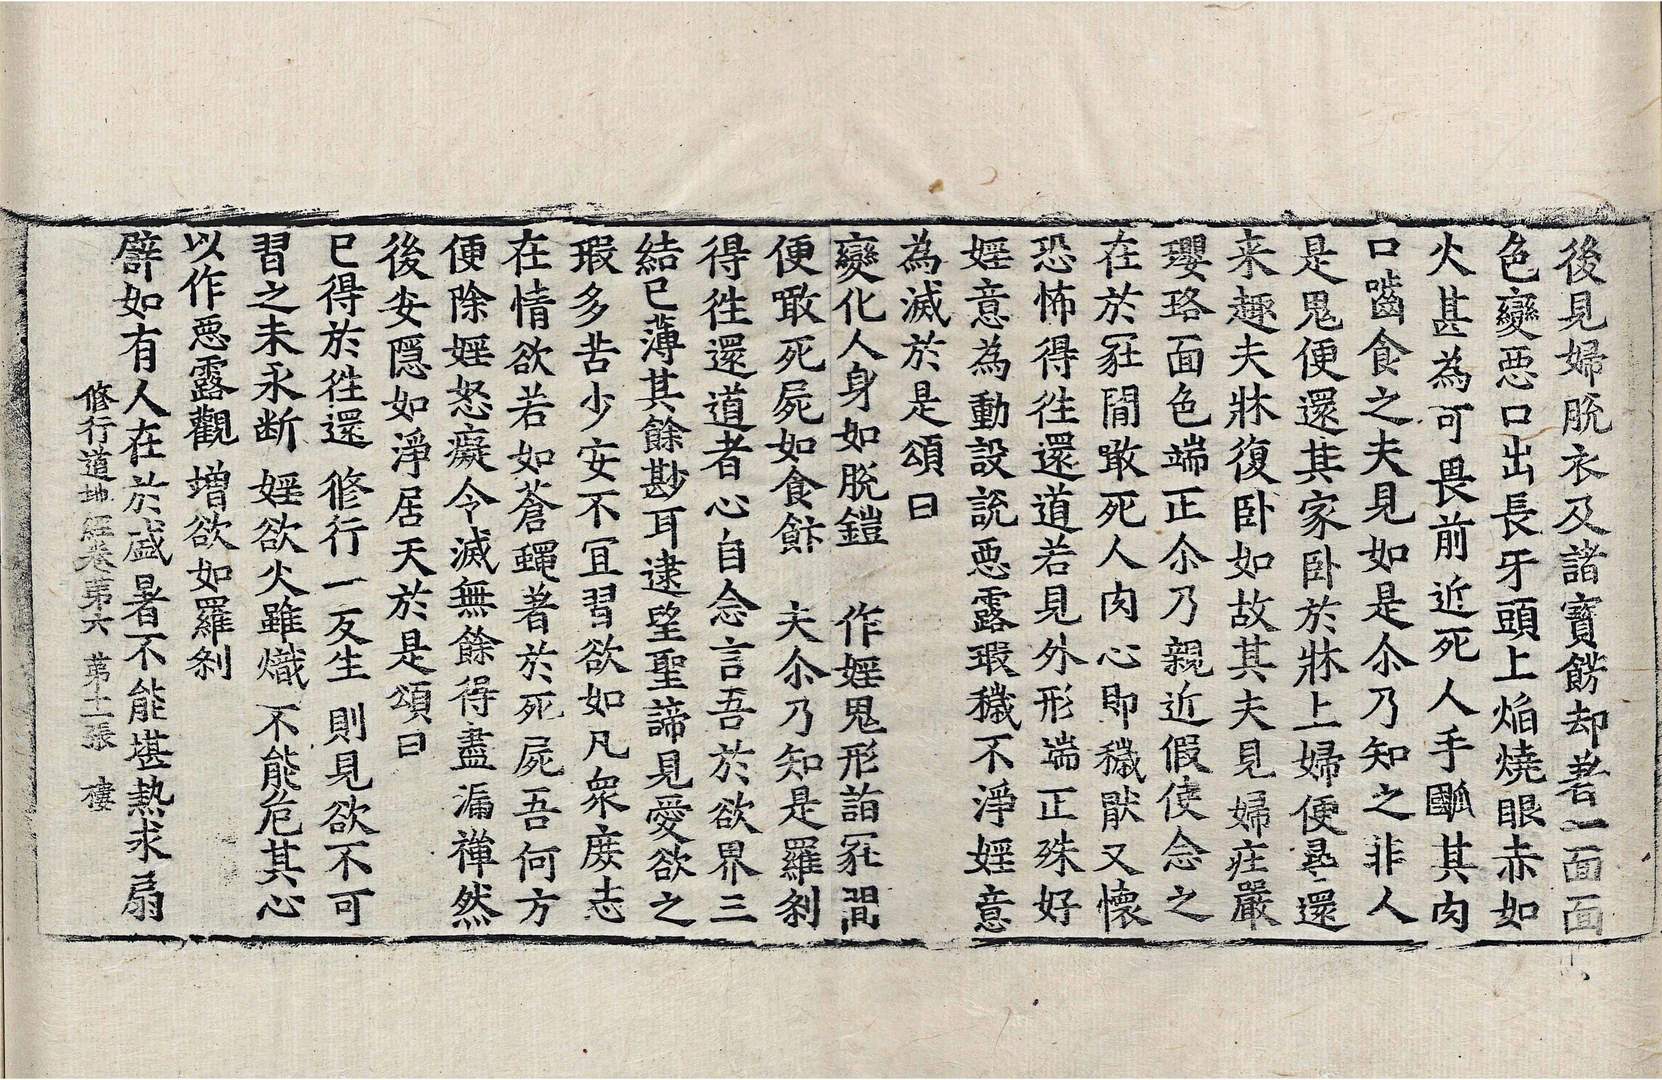 後見婦脫衣及諸寶餝却著一面面
色變惡口出長牙頭上焰燒眼赤如
火甚為可畏前近死人手䶥其肉
口嚙食之夫見如是尒乃知之非人
是鬼便還其家卧於牀上婦便尋還
来趣夫牀復卧如故其夫見婦莊嚴
瓔珞面色端正尒乃親近假使念之
在於冡間噉死人肉心即穢猒又懷
恐怖得徃還道若見外形端正殊好
婬意為動設說惡露瑕穢不淨婬意
為滅於是頌曰
變化人身如脫鎧　作婬鬼形詣冡間
便噉死屍如食餅　夫尒乃知是羅剎
得徃還道者心自念言吾於欲界三
結已薄其餘尠耳逮聖聖諦見愛欲之
瑕多苦少安不宜習欲如凡衆庶志
在情欲若如蒼蠅著於死屍吾何方
便除婬怒癡令滅無餘得盡漏禪然
後安隱如淨居天於是頌曰
已得於徃還　修行一反生　則見欲不可
習之未永断　婬欲火雖熾　不能危其心
以作惡露觀　增欲如羅剎
譬如有人在於盛暑不能堪熱求扇
修行道地經卷第六　第十二張　樓